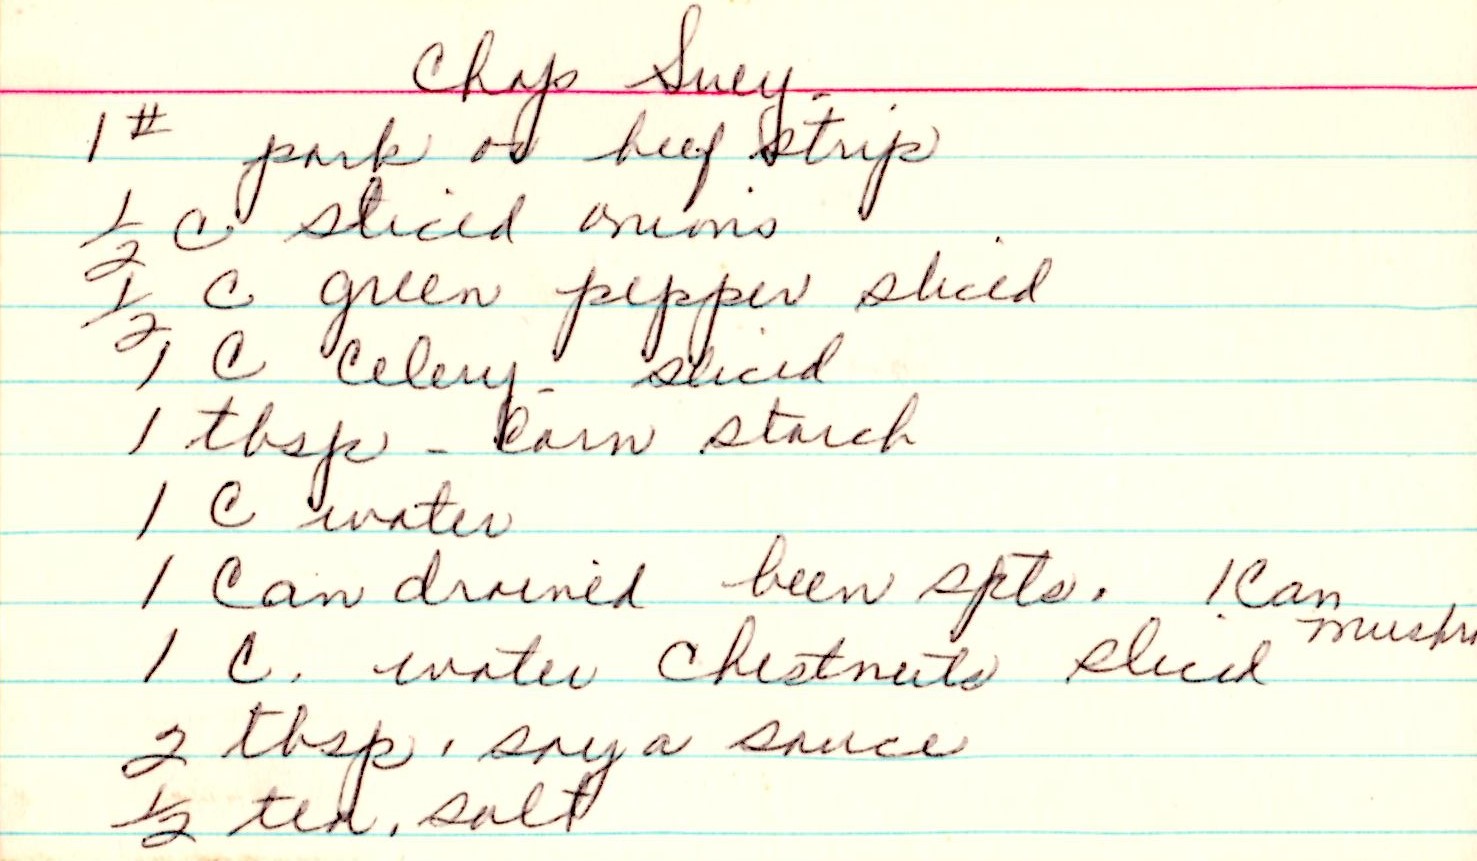 Chop Suey
1# pork or beef strip
1/2 C sliced onions
1/2 C green pepper sliced
1 C Celery - sliced
1 tbsp - Corn starch
1 C water
1 Can drained been spts. 1 Can mushr
1 C. water chestnuts sliced
2 tbsp. soya sauce
1/2 tea. salt